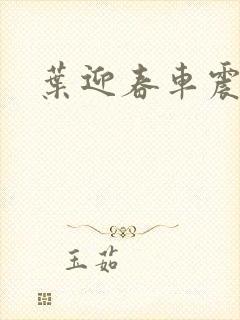 葉迎春車震
玉茹